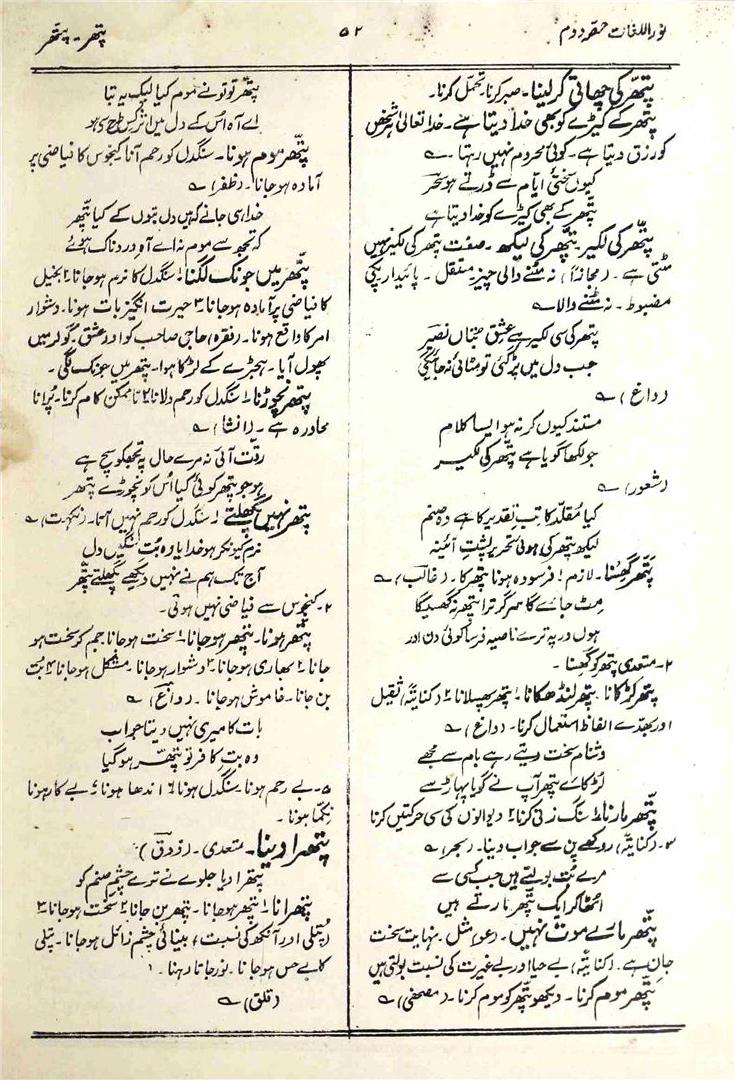 نور اللغات حصہ دوم
۵۲
پتھر - پتھر
پتھر کی چھاتی کر لینا۔ صبر کرنا۔ تحمل کرنا۔
پتھر کے کیڑے کو بھی خدا دیتا ہے۔ خدا تعالیٰ ہر شخص
کو رزق دیتا ہے۔ کوئی محروم نہیں رہتا۔ ؎
کیوں سختیٔ ایام سے ڈرتے ہو سحر
پتھر کے بھی کیڑے کو خدا دیتا ہے
پتھر کی لکیر۔ پتھر کی لیکھ۔ صفت پتھر کی لکیر نہیں
مٹتی ہے۔ (مجازاً) نہ مٹنے والی چیز مستقل۔ پائیدار پکی
مضبوط۔ نہ مٹنے والا ؎
پتھر کی سی لکیر ہے عشق بتاں نصیر
جب دل میں پڑ گئی تو مٹائی نہ جائیگی
(داغ) ؎
مستند کیوں کر نہ ہو ایسا کلام
جو لکھا گویا ہے پتھر کی لکیر
(شعور) ؎
کیا مقلد کاتب تقدیر کا ہے وہ صنم
لیکھ پتھر کی ہوئی تحریر پشت آئینہ
پتھر گھسنا۔ لازم ۱ فرسودہ ہونا پتھر کا۔ (غالب) ؎
مٹ جائے گا سر گر ترا پتھر نہ گھسیگا
ہوں در پہ ترے ناصیہ فرسا کوئی دن اور
۲۔ متعدی پتھر کو گھسنا۔
پتھر لڑکانا۔ پتھر لنڈھکانا۔ ۱ پتھر پھسلانا ۲ (کنایتہً) ثقیل
اور بھدے الفاظ استعمال کرنا۔ (داغ) ؎
دشنام سخت دیتے رہے بام سے مجھے
لڑکائے پتھر آپ نے گویا پہاڑ سے
پتھر مارنا ۱ سنگ زنی کرنا ۲ دیوانوں کی سی حرکتیں کرنا
۳۔ (کنایتہً) روکھے پن سے جواب دینا۔ (بحر) ؎
مرے بت بولتے ہیں جب کسی سے
اٹھا کر ایک پتھر مارتے ہیں
پتھر مارے موت نہیں۔ (عو) مثل۔ نہایت سخت
جان ہے۔ (کنایتہً) بے حیا اور بے غیرت کی نسبت بولتی ہیں
پتھر موم کرنا۔ دیکھو پتھر کو موم کرنا۔ (مصحفی) ؎
پتھر تو تو نے موم کیا لیک یہ بتا
اے آہ اس کے دل میں اثر کس طرح سے ہو
پتھر موم ہونا۔ سنگدل کو رحم آنا کنجوس کا فیاضی پر
آمادہ ہو جانا۔ (ظفر) ؎
خدا ہی جانے کہ ہیں دل بتوں کے کیا پتھر
کہ تجھ سے موم نہ اے آہ دردناک ہوئے
پتھر میں جونک لگنا ۱ سنگدل کا نرم ہو جانا ۲ بخیل
کا فیاضی پر آمادہ ہو جانا ۳ حیرت انگیز بات ہونا۔ دشوار
امر کا واقع ہونا۔ (فقرہ) حاجی صاحب کو اور عشق۔ گولر میں
پھول آیا۔ ہیجڑے کے لڑکا ہوا۔ پتھر میں جونک لگی۔
پتھر نچوڑنا ۱ سنگدل کو رحم دلانا ۲ نا ممکن کام کرنا۔ پرانا
محاورہ ہے۔ (انشا) ؎
رقت آئی نہ مرے حال پہ تجھ کو سچ ہے
ہو جو پتھر کوئی کیا اس کو نچوڑے پتھر
پتھر نہیں پگھلتے ۱ سنگدل کو رحم نہیں آتا۔ (نکہت) ؎
نرم کیونکر ہو خدایا وہ بت سنگیں دل
آج تک ہم نے نہیں دیکھے پگھلتے پتھر
۲۔ کنجوس سے فیاضی نہیں ہوتی۔
پتھر ہونا۔ پتھر ہو جانا۔ ۱ سخت ہو جانا۔ جم کر سخت ہو
جانا ۲ بھاری ہو جانا۔ ۳ دشوار ہو جانا۔ مشکل ہو جانا ۴ بت
بن جانا۔ خاموش ہو جانا۔ (داغ) ؎
بات کا میری نہیں دیتا جواب
وہ بت کافر تو پتھر ہو گیا
۵۔ بے رحم ہونا۔ سنگدل ہونا ۶ اندھا ہونا ۷ بے کار ہونا
نکما ہونا۔
پتھرا دینا۔ متعدی۔ (ذوق)
پتھرا دیا جلوے نے ترے چشم صنم کو
پتھرانا ۱ پتھر ہو جانا۔ پتھر بن جانا ۲ سخت ہو جانا ۳
(پتلی اور آنکھ کی نسبت) بینائی چشم زائل ہو جانا۔ پتلی
کا بے حس ہو جانا۔ نور جاتا رہنا۔
(قلق) ؎